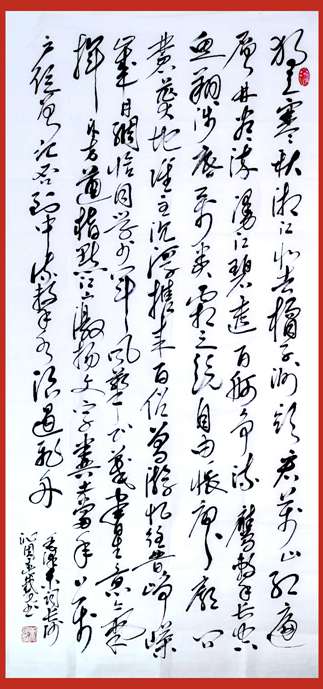 独立寒秋湘江北去橘子洲头看万山红遍
层林尽染漫江碧透百舸争流鹰击长空
鱼翔浅底万类霜天竞自由怅寥廓问
苍茫大地谁主沉浮携来百侣曾游忆往昔峥嵘
岁月稠恰同学少年风华正茂书生意气
挥斥方遒指点江山激扬文字粪土当年万
户侯曾记否到中流击水浪遏飞舟
毛泽东词长沙
沁园春